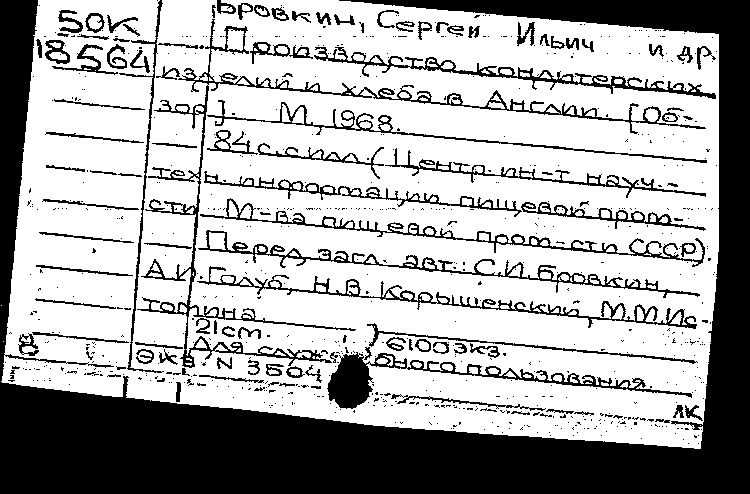 50К
18564
Бровкин, Сергей Ильич и др.
Производство кондитерских
изделий и хлеба в Англии. [Об-
зор]. М., 1968.
84 с. с илл. (Центр. ин-т науч.-
техн. информации пищевой пром-
сти М-ва пищевой пром-сти СССР).
Перед загл. авт.: С.И. Бровкин,
А.И. Голуб, Н.В. Карышенский, М.М. Ис-
томина.
21 cm. 6100 экз.
Для служебного пользования.
Экз. N 3504
лк